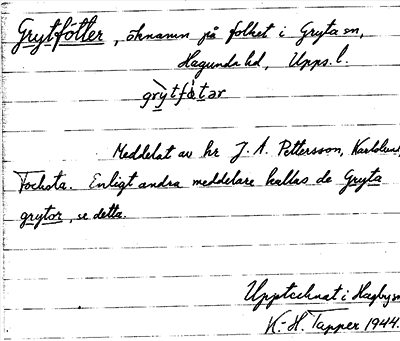 Grytfötter, öknamn på folket i Gryta sn,
Hagunda hd, Upps. l.
grỳtfø̀tər
Meddelat av hr J. A. Pettersson, Karlslund,
Tocksta. Enligt andra meddelare kallas de Gryta
grytor, se detta.
Upptecknat i Hagbysn
K.-H. Tapper 1944.